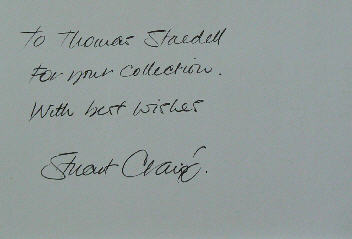 To Thomas Staedeli
For your Collection.
With best wishes
Stuart Craig.